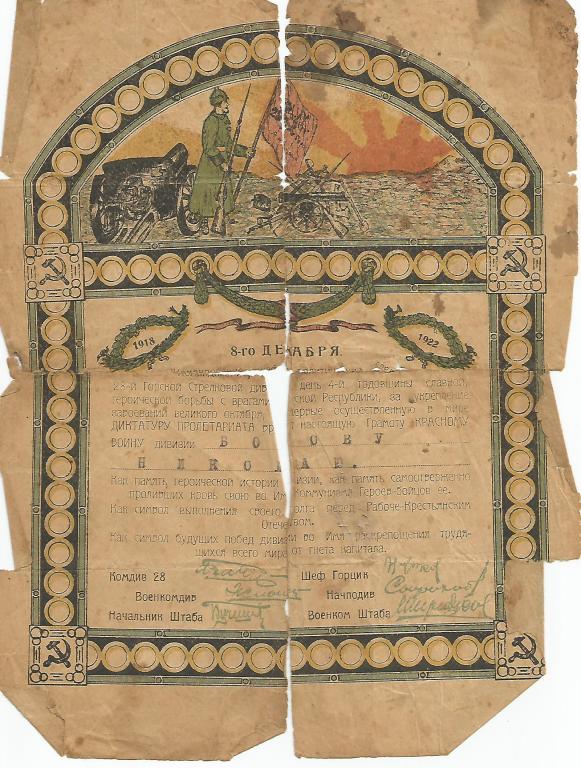 1918
1922
8-го ДЕКАБРЯ.
28-й Горской Стрелковой див день 4-й годовщины славной,
героической борьбы с врагами ской Республики, за укрепление
завоеваний великого октября, первые осуществленную в мире
ДИКТАТУРУ ПРОЛЕТАРИАТА вр т настоящую Грамоту КРАСНОМУ
ВОИНУ дивизии
НИКОЛАЕ.
Как память героической истории изии, как память самоотверженно
проливших кровь свою во Им Коммунизма Героев-бойцов ее.
Как символ выполнения своего олга перед Рабоче-Крестьянским
Отече вом.
Как символ будущих побед диви и во Имя раскрепощения трудя-
щихся всего мира от гнета капитала.
Комдив 28 Шеф Горцик
Военкомдив Начподив
Начальник Штаба Военком Штаба